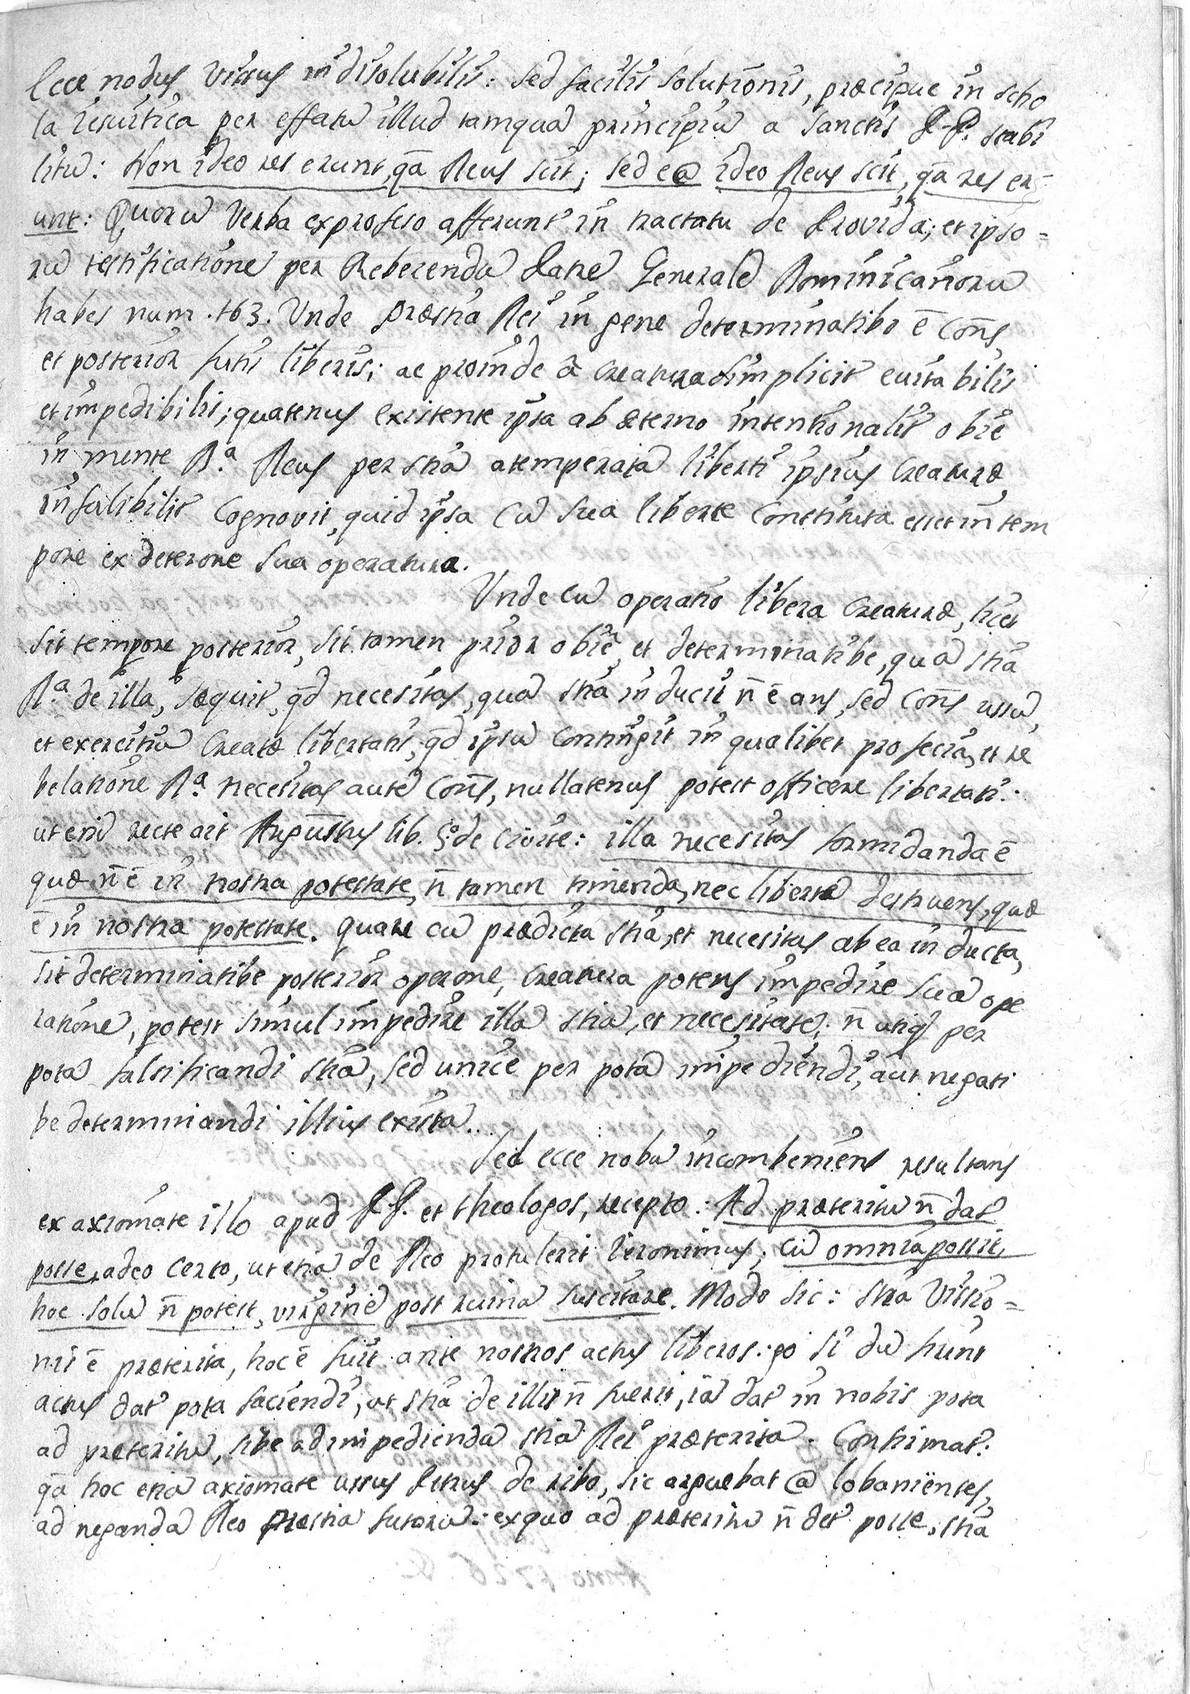 Ecce nodus, Vissus indisolubilis: sed facilis solutionis, præcipue in scho
la iesuitica per effatũ illud tamquã principiũ a Sanctis P.P. stabi
litũ: Non ideo res erunt, qã Deus scit; sed e@ ideo Deus scit, qã res er=
unt: Quorũ Verba exprofeso afferunt in tractatu de Provida; et ipso=
rũ testificatione per Reberendũ Patre Generale Dominicanorũ
habes num. 163. Unde præstia Dei in gene determinatibo ē Cons,
et posterior futis liberis; ac proinde â creatura simplicit evita bilis
et impedibilis; quatenus existente ipsa ab æterno intentionalit obie
in mente Da. Deus per stiã atemperatã liberti ipsius Creaturæ,
infalibilit Cognovit, quid ipsa cũ sua liberte Constituta esset in tem
pore ex deterone sua operatura.
Unde cũ operatio libera Creaturæ, licet
sit tempore posterior, sit tamen prior obie, et determinatibe, quã stia
Da. de illa, sæquit, qd necesitas, quã stia inducit n̄ ē ans, sed Cons usũ,
et exercitiũ Creatæ libertatis, qd ipsũ Contingit in qualibet profecia, et re
belatione Da. Necesitas autē Cons, nullatenus potest officere libertati:
ut enĩ recte ait Augustnus lib. 5º de Civite: illa necesitas formidanda ē
quæ n̄ ē in nostra potestate, n̄ tamen timenda, nec libertã destruens, quæ
ē in nostra potestate. quare cũ prædicta stia, et necesitas ab ea inducta,
sit determinatibe posterior operone, Creatura potens impedire suã ope
rationē, potest simul impedire illã stiã, et necesitatē; n̄ utiq per
potã falsificandi stiã, sed unice per potã impediendi, aut negati
be determinandi illius exista...
Sed ecce nobũ incombeniens resultans
ex axiomate illo apud P.P. et theologos, recepto: Ad præteritũ n̄ dat
posse, adeo certo, ut etiã de Deo protulerit Ieronimus; cũ omnia possit,
hoc solũ n̄ potest, virginē post ruinã suscitare. Modo sic: stia Visio=
nis ē præterita, hoc ē fuit ante nostros actus libeross: go si dũ fiunt
actus dat pota faciendi, ut stia de illis n̄ fuerit, iã dat in nobis pota
ad præteritũ, sibe ad impediendã stiã Dei præteritã. Confirmat:
qã hoc etiã axiomate usus Petrus de ribo, sic arguebat @ lobaniēntes,
ad negandã Deo præstiã futorũ: exquo ad præteritũ n̄ det posse, stiã